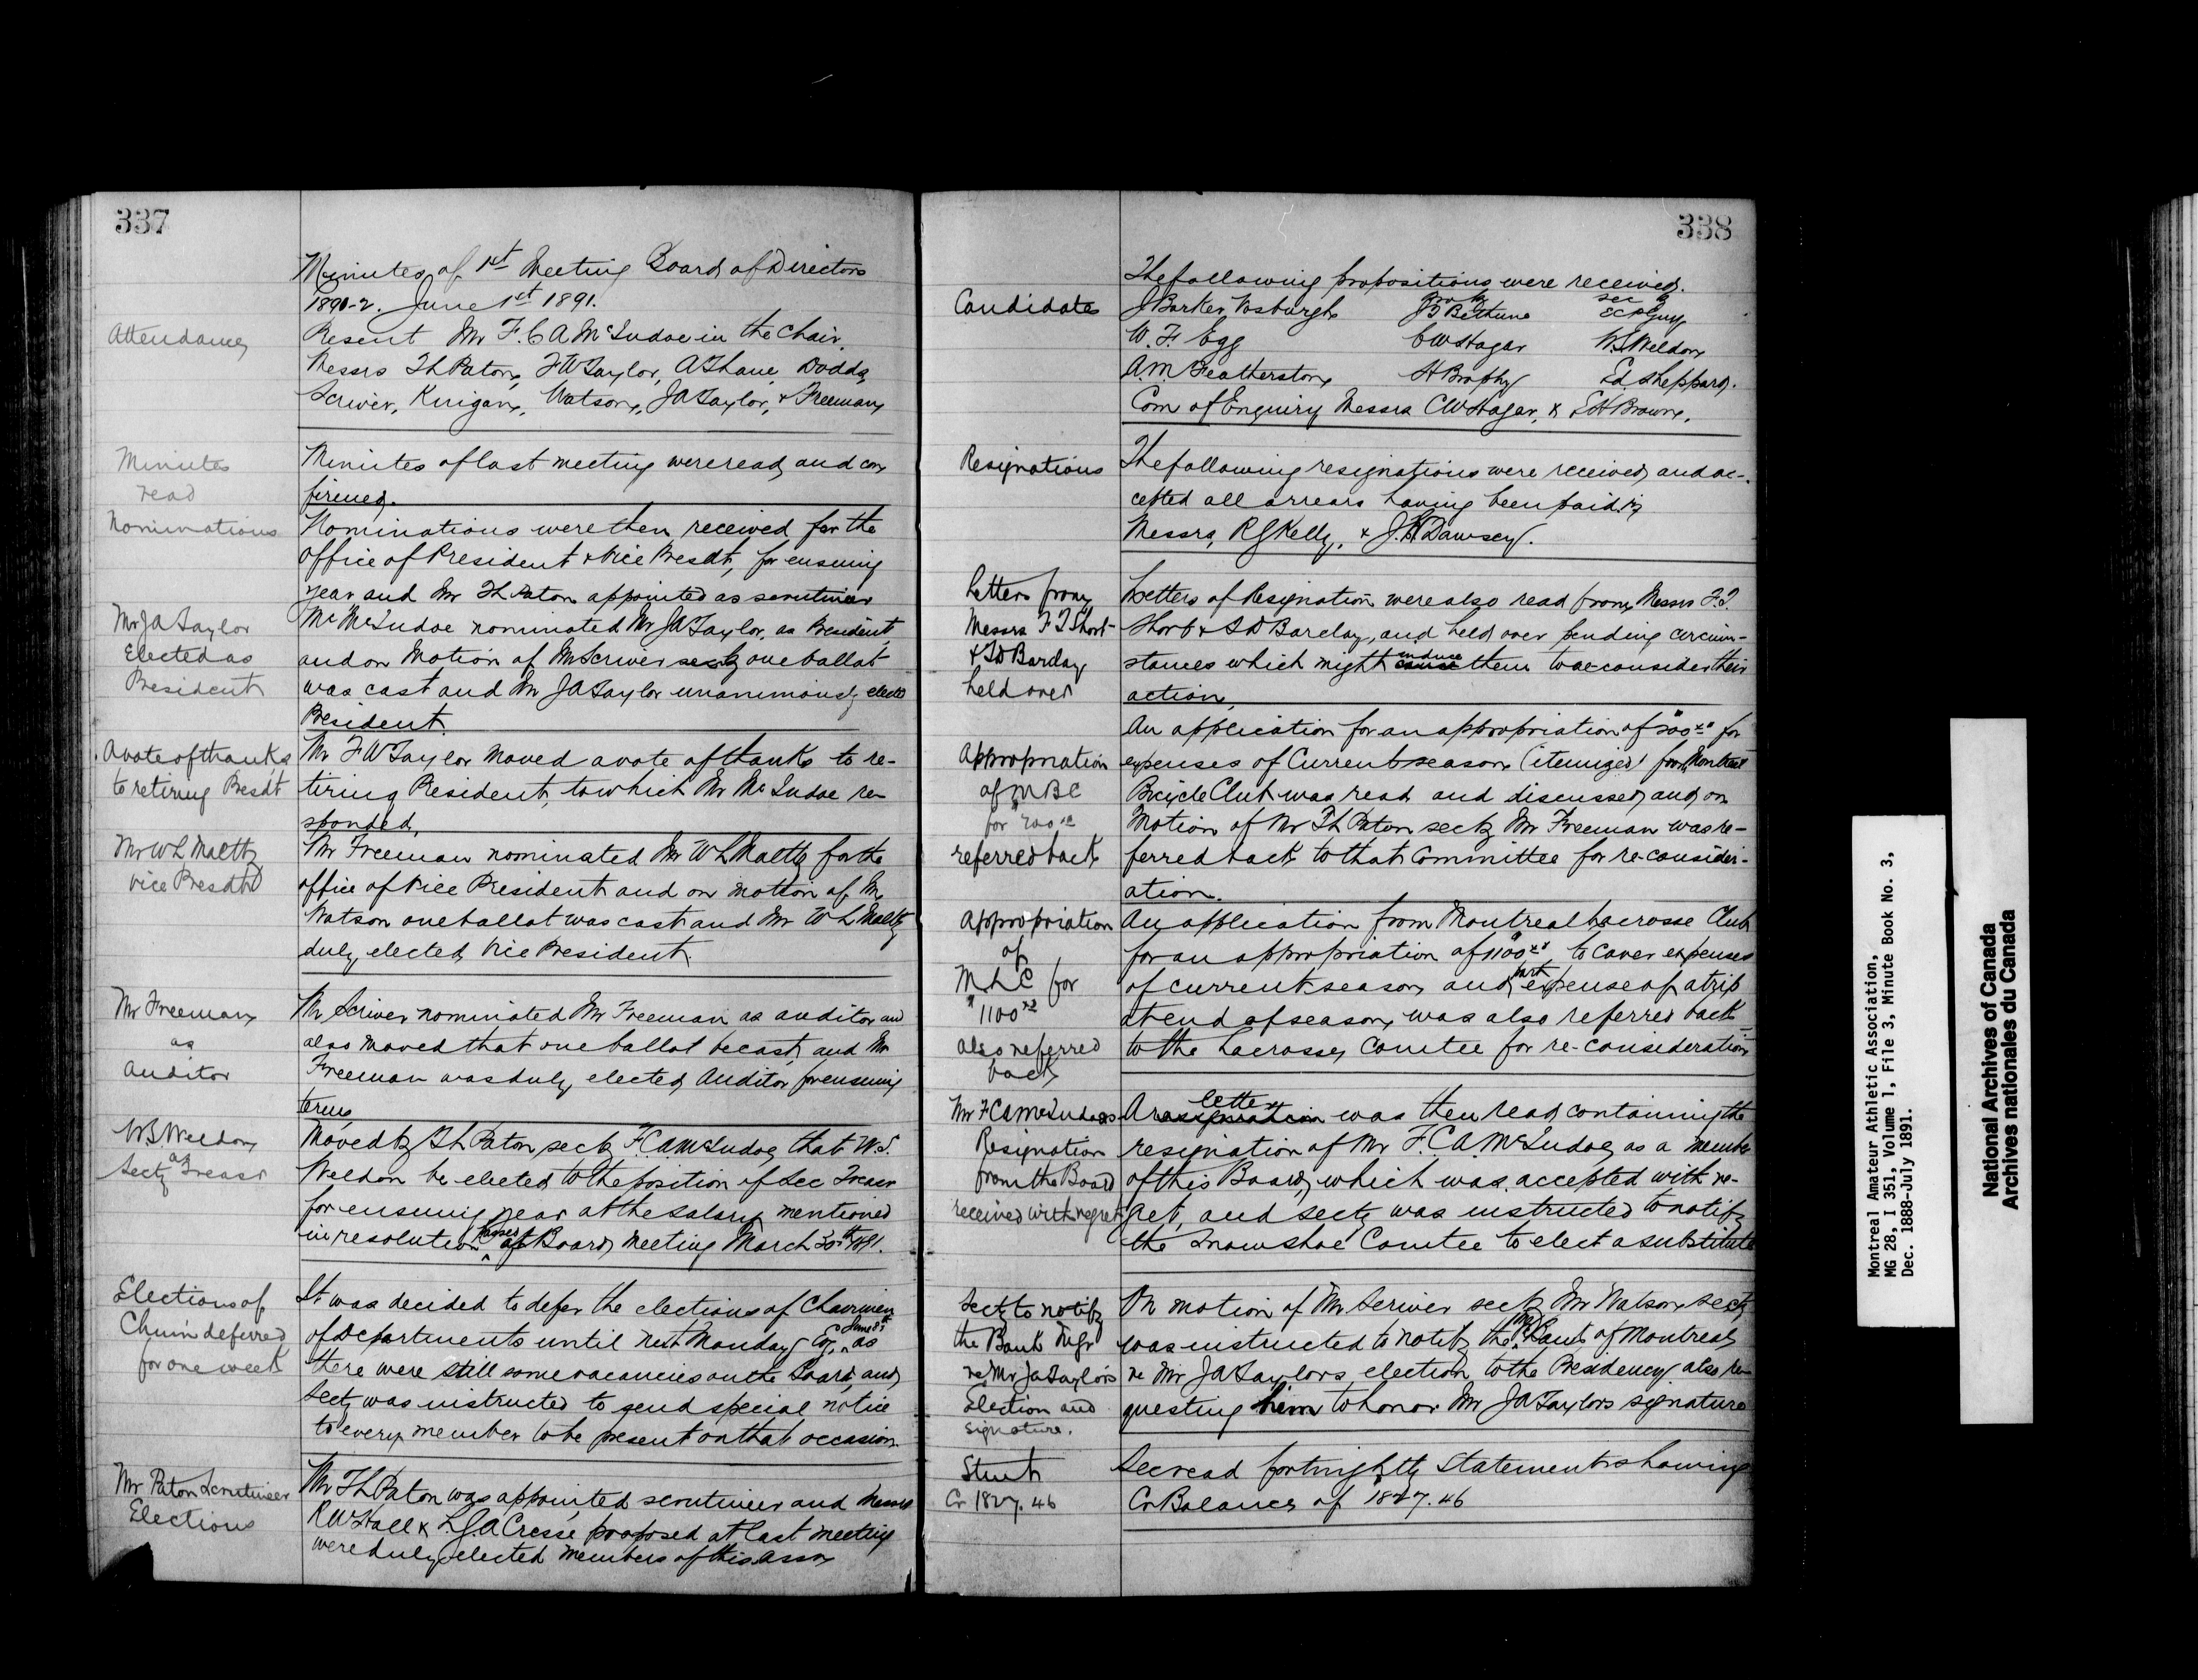 337
Minutes of 1st Meeting Board of Directors
1891-2. June 1st 1891.
Attendance
Present Mr F. C A McIndoe in the Chair.
Messrs Th Paton, F W Taylor, A Shane, Dodds,
Scriver, Kerigan, Watson, J A Taylor, & Freeman
Minutes
read
Minutes of last meeting were read, and con
firmed.
Nominations
Nominations were then received for the
Office of President & Vice Presdt, for ensuing
year and Mr Th Paton appointed as scrutineer
Mr JA Taylor
Elected as
President
Mr McIndoe nominated Mr JA Taylor, as President,
and on Motion of Mr Scriver secd by one ballot
was cast and Mr JA Taylor unanimously elected
President.
A vote of thanks
to retiring Presdt
Mr F W Taylor moved a vote of thanks to re-
tiring President, to which Mr McIndoe re
sponded,
Mr W L Maltby
Vice Presdt
Mr Freeman nominated Mr W L Maltby for the
office of Vice President and on motion of Mr
Watson one ballot was cast and Mr W L Maltby
duly elected Vice President.
Mr Freeman
as
Auditor
Mr Scriver nominated Mr Freeman as auditor and
also moved that one ballot be cast, and Mr
Freeman was duly elected Auditor for ensuing
term
W S Weldon
as
Secty Treasr
Moved by Th Paton sec by F.C.A McIndoe, that W.S.
Weldon be elected to the position of Sec Treasr
for ensuing year at the salary mentioned
in resolution passed at Board meeting March 30th 1891.
Elections of
Chmn deferred
for one week
It was decided to defer the elections of Chairmen
of Departments until next Monday Evg, June 8th as
there were still some vacancies on the Board, and
Secty was instructed to send special notice
to every member to be present on that occasion.
Mr Paton Scrutineer
Elections
Mr Th Paton was appointed scrutineer and Messrs
R W Hall & L J. A Cresse proposed at last meeting
were duly elected members of this Assn
338
The following propositions were received.
Candidates
prop by sec by
J Barker Vosburgh JB Bethune
W. F. Egg C W Hagar W.S. Weldon
A.M. Featherston H Brophy Ed. Sheppard.
Com of Enquiry Messrs C W Hagar, & E H Brown.
Resignations
The following resignations were received, and ac-
cepted all arrears having been paid.
Messrs, R J Kelly, & J. H Dawsey.
Letters from
Messrs F J Short
& S D Barclay
held over
Letters of Resignation were also read from Messrs F. J.
Short & S D Barclay, and held over pending circum-
stances which might induce cause them to re-consider their
action.
Appropriation
of M B C
for 200.00
referred back
An application for an appropriation of $200.00 for
expenses of Current season (itemized) from Montreal
Bicycle Club was read and discussed, and on
Motion of Mr Th Paton sec by Mr Freeman was re-
ferred back to that Committee for re-consider-
ation.
Appropriation
of
M L C for
$1100.00
also referred
back
An application from Montreal Lacrosse Club
for an appropriation of $1100.00 to cover expenses
of current season, and part expense of a trip
at end of season, was also referred back
to the Lacrosse Comtee for re-consideration
Mr F C A McIndoes
Resignation
from the Board
received with regret
A resignation letter was then read, containing the
resignation of Mr F. C. A. McIndoe, as a member
of this Board, which was accepted with re-
gret, and secty was instructed to notify
the Snowshoe Comtee to elect a substitute
Secty to notify
the Bank Mgr
re Mr Ja Taylors
Election and
Signature.
On motion of Mr Scriver sec by Mr Watson Secty
was instructed to notify the Mgr Bank of Montreal
re Mr JA Taylors election to the Presidency, also re-
questing him to honor Mr JA Taylors signature
Stmt
Cr 1827.46
Sec read fortnightly Statement showing
Cr Balance of $1827.46
Montreal Amateur Athletic Association,
MG 28, I 351, Volume 1, File 3, Minute Book No. 3,
Dec. 1888-July 1891.
National Archives of Canada
Archives nationales du Canada